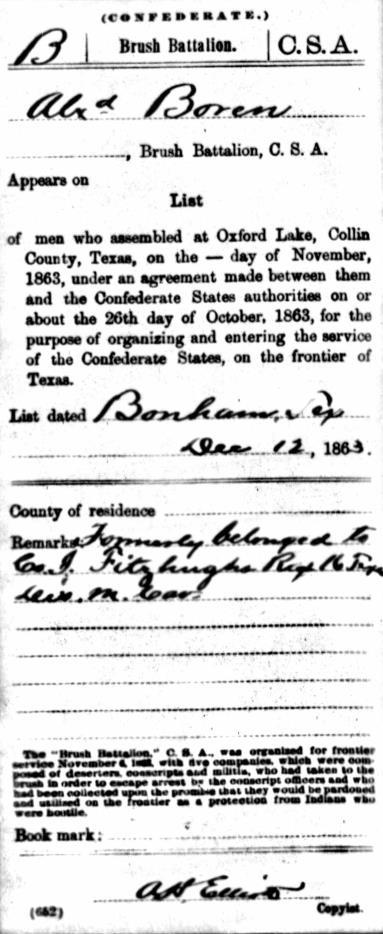 (CONFEDERATE.)
B | Brush Battalion. | C.S.A.
Alxd Boren
, Brush Battalion, C. S. A.
Appears on
List
of men who assembled at Oxford Lake, Collin
County, Texas, on the — day of November,
1863, under an agreement made between them
and the Confederate States authorities on or
about the 26th day of October, 1863, for the
purpose of organizing and entering the service
of the Confederate States, on the frontier of
Texas.
List dated Bonham, Tex
Dec 12, 1863.
County of residence
Remarks: Formerly belonged to
Co. I. Fitzhughs Reg 16 Tex
Cav.
The "Brush Battalion," C. S. A., was organized for frontier
service November 6, 1863, with five companies, which were com-
posed of deserters, conscripts and militia, who had taken to the
brush in order to escape arrest by the conscript officers and who
had been collected upon the promise that they would be pardoned
and utilized on the frontier as a protection from Indians who
were hostile.
Book mark:
A H Elliott
(652) Copyist.